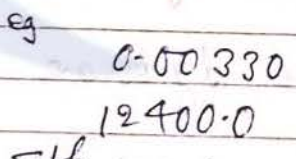 eg
0.00330
12400.0